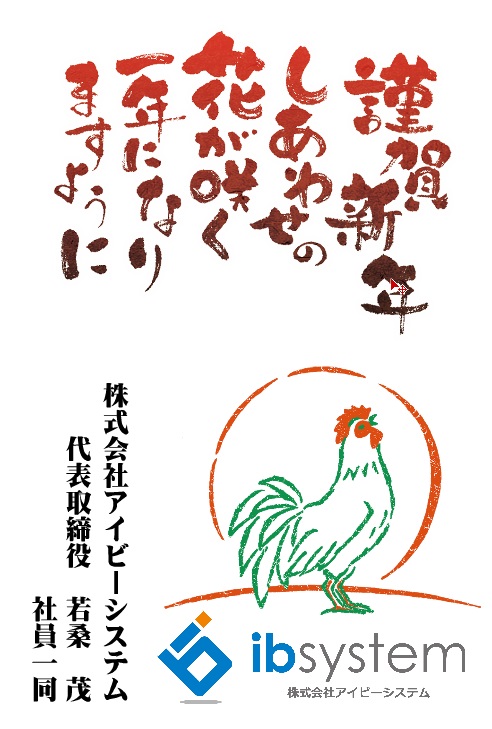 謹賀新年
しあわせの
花が咲く
一年になり
ますように
株式会社アイビーシステム
代表取締役　若桑　茂
社員一同
ibsystem
株式会社アイビーシステム